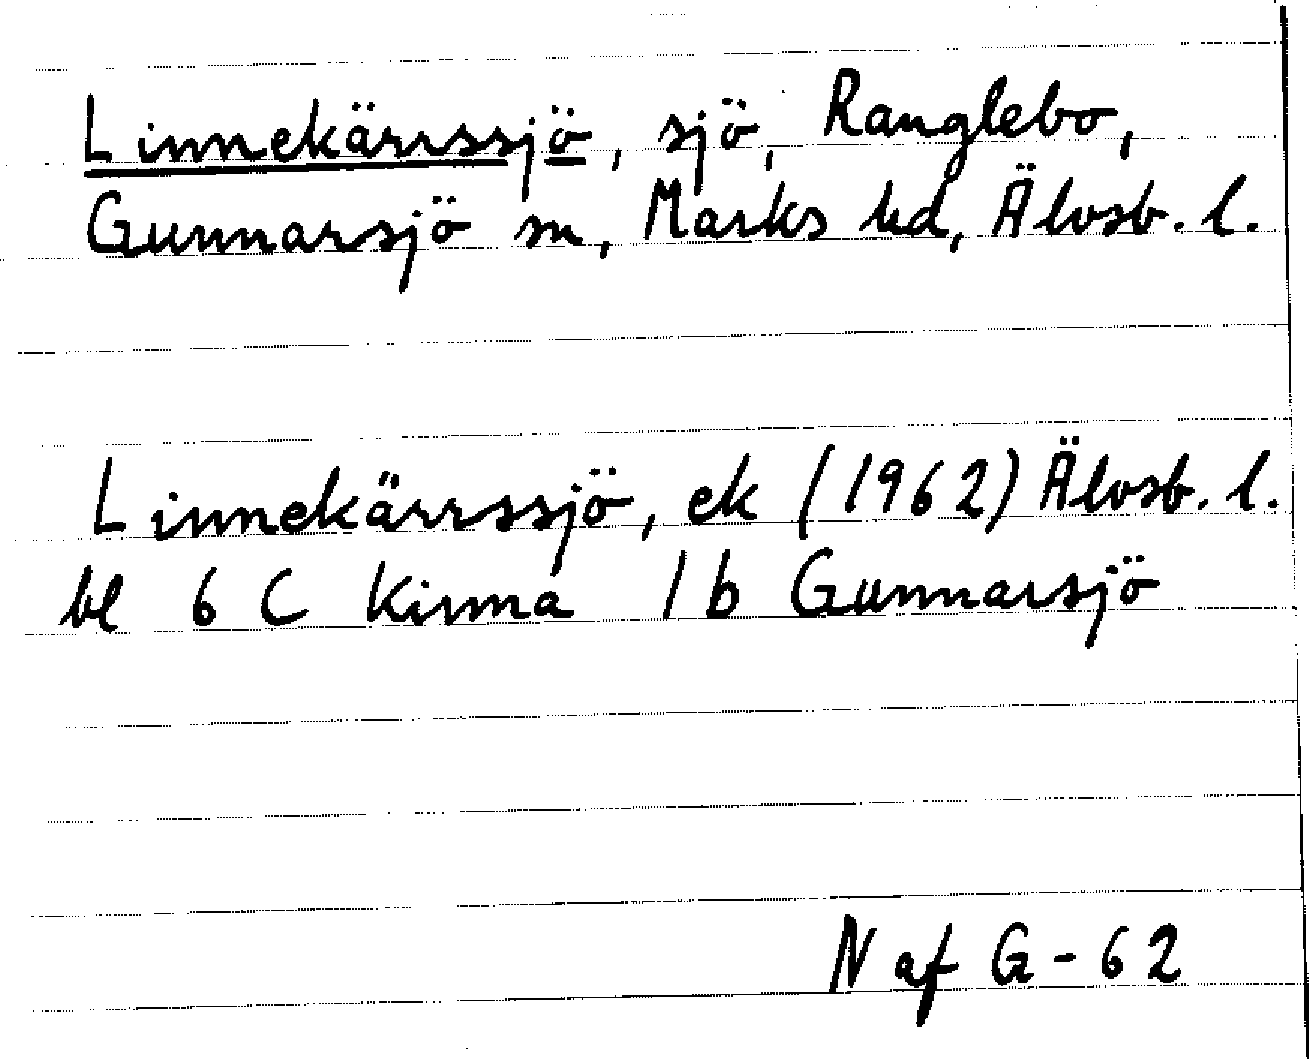 Linnekärrssjö, sjö, Ranglebo,
Gunnarsjö sn, Marks hd, Älvsb. l.
Linnekärrssjö, ek (1962) Älvsb. l.
bl 6 C Kinna 1 b Gunnarsjö
N af G - 62